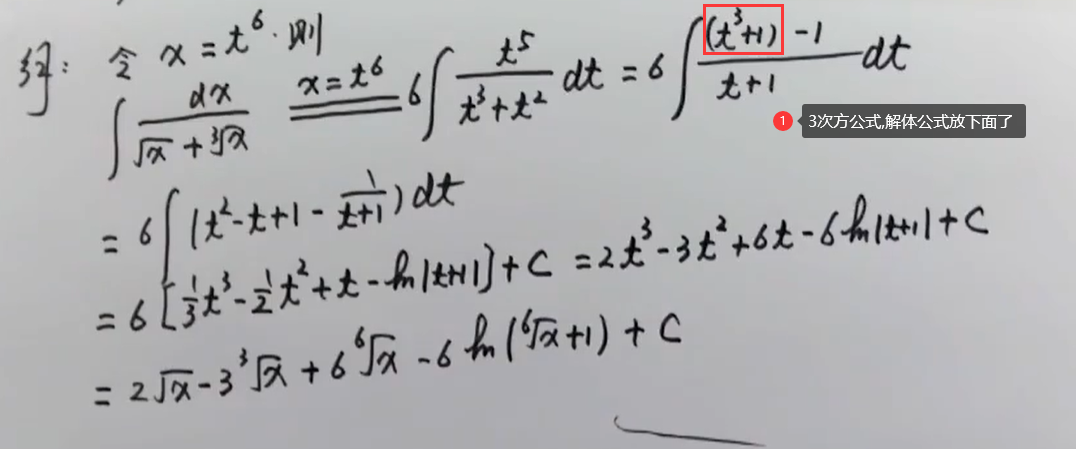 解: 令 x = t⁶. 则
∫ dx/(√x + ∛x) (x = t⁶) = 6∫ t⁵/(t³+t²) dt = 6∫ ((t³+1) -1)/(t+1) dt
1 3次方公式,解体公式放下面了
= 6∫ (t²-t+1 - 1/(t+1)) dt
= 6[1/3 t³ - 1/2 t² + t - ln|t+1|] + C = 2t³ - 3t² + 6t - 6ln|t+1| + C
= 2√x - 3 ³√x + 6 ⁶√x - 6 ln(⁶√x + 1) + C